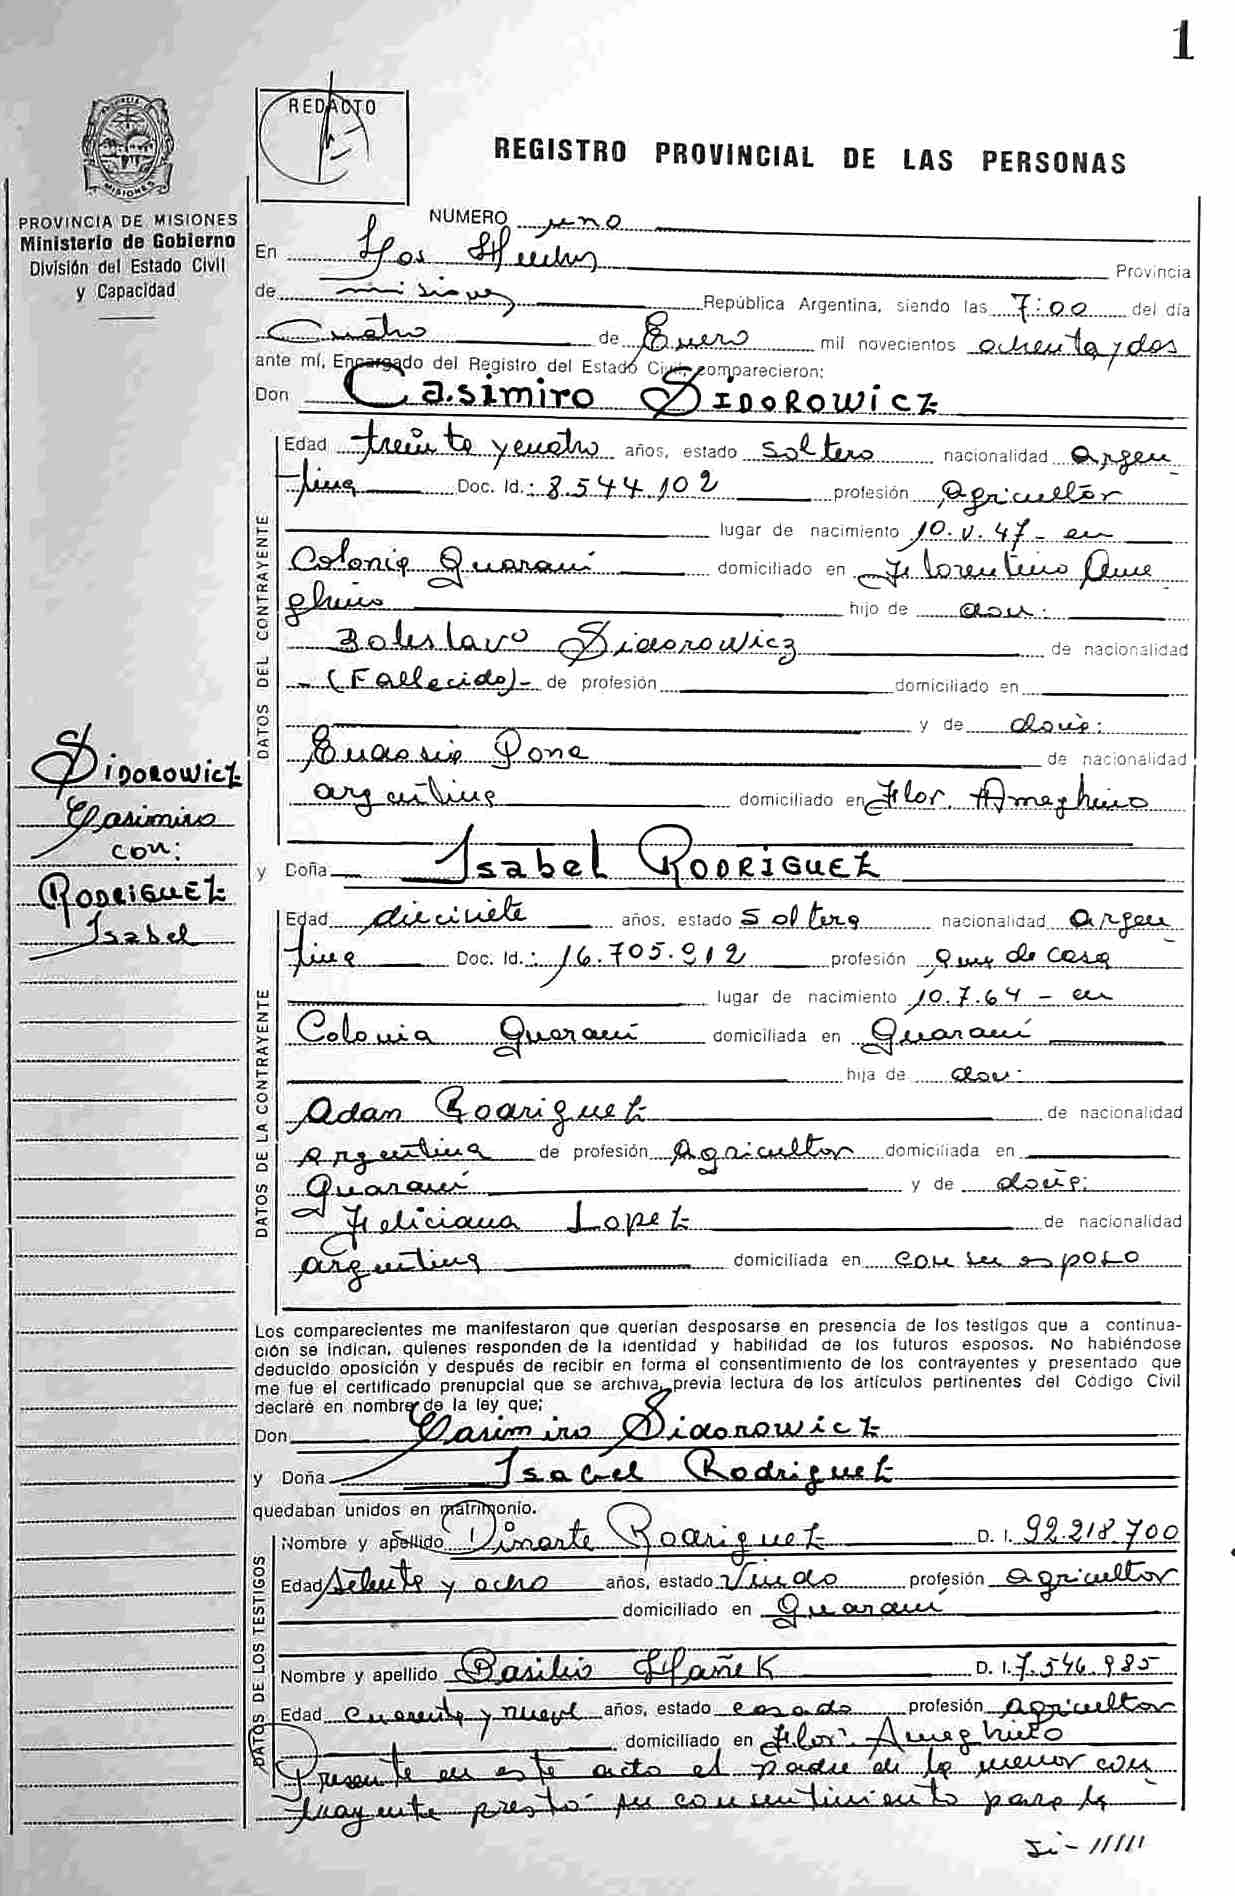 1
REDACTO
REGISTRO PROVINCIAL DE LAS PERSONAS
MISIONES
PROVINCIA DE MISIONES
Ministerio de Gobierno
División del Estado Civil
y Capacidad
NUMERO uno
En Los Helechos Provincia
de misiones República Argentina, siendo las 7:00 del día
Cuatro de Enero mil novecientos ochenta y dos
ante mí, Encargado del Registro del Estado Civil, comparecieron:
Don Casimiro SIDOROWicz
Edad treinta y cuatro años, estado soltero nacionalidad argen
tina Doc. Id.: 8.544.102 profesión Agricultor
lugar de nacimiento 10.V.47 - en
Colonia Guaraní domiciliado en Florentino Ame
ghino hijo de don:
Boleslavo Sidorowicz de nacionalidad
- (Fallecido) - de profesión domiciliado en
y de doña:
Eudosia Pona de nacionalidad
argentina domiciliado en Flor. Ameghino
y Doña Isabel RODRiGUEZ
Edad diecisiete años, estado soltera nacionalidad argen
tina Doc. Id.: 16.705.912 profesión ama de casa
lugar de nacimiento 10.7.64 - en
Colonia Guaraní domiciliada en Guaraní
hija de don:
Adan Rodriguez de nacionalidad
Argentina de profesión Agricultor domiciliada en
Guaraní y de doña:
Feliciana Lopez de nacionalidad
argentina domiciliada en con su esposo
DATOS DEL CONTRAYENTE
DATOS DE LA CONTRAYENTE
SiDOROWicz
Casimiro
con:
RODRiGUEZ
Isabel
Los comparecientes me manifestaron que querían desposarse en presencia de los testigos que a continua-
ción se indican, quienes responden de la identidad y habilidad de los futuros esposos. No habiéndose
deducido oposición y después de recibir en forma el consentimiento de los contrayentes y presentado que
me fue el certificado prenupcial que se archiva, previa lectura de los artículos pertinentes del Código Civil
declaré en nombre de la ley que;
Don Casimiro Sidorowicz
y Doña Isabel Rodriguez
quedaban unidos en matrimonio.
Nombre y apellido Dinarte Rodriguez D. I. 92.218.700
Edad setenta y ocho años, estado Viudo profesión agricultor
domiciliado en Guaraní
Nombre y apellido Basilio Hañek D. I. 7.546.985
Edad cuarenta y nueve años, estado casado profesión Agricultor
domiciliado en Flor. Ameghino
DATOS DE LOS TESTIGOS
Presente en este acto el padre de la menor con
trayente prestó su consentimiento para la